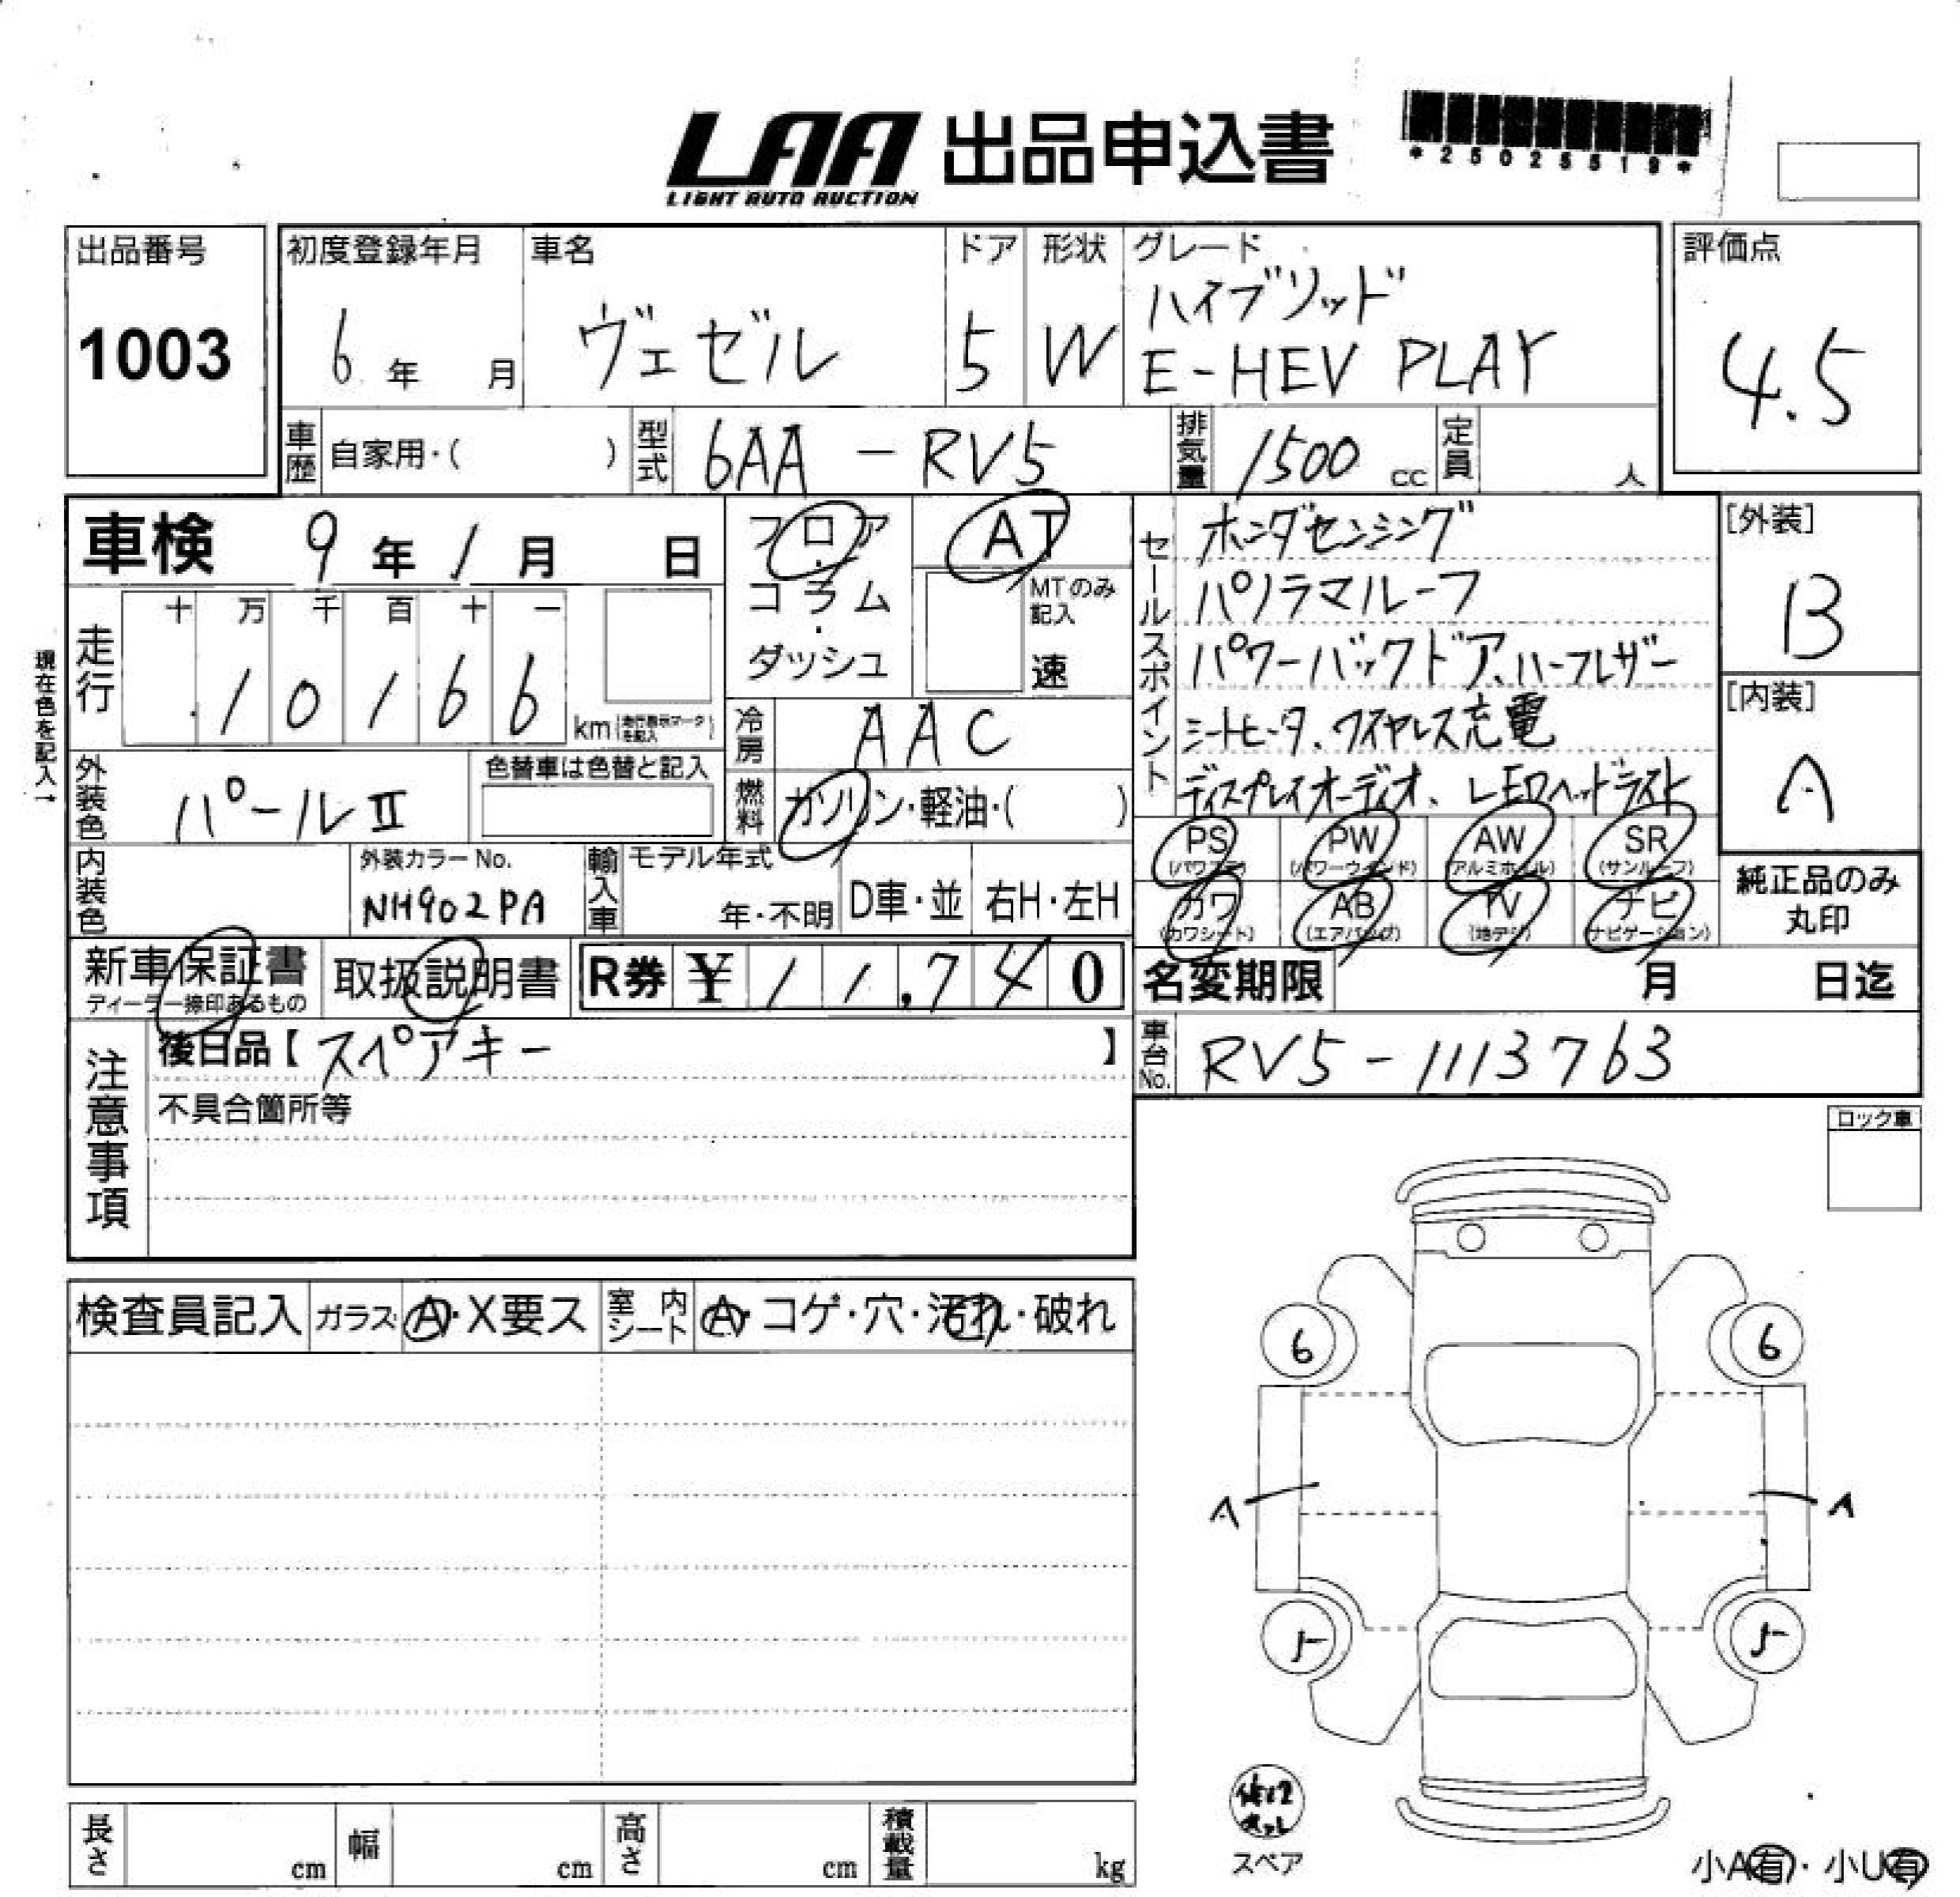 LAA 出品申込書
LIGHT AUTO AUCTION
*25025519*
出品番号
1003
初度登録年月
6年 月
車名
ヴェゼル
ドア
5
形状
W
グレード
ハイブリッド
E-HEV PLAY
評価点
4.5
車歴 自家用・( )
型式 6AA-RV5
排気量 1500cc
定員 人
車検 9年1月 日
フロア
・
コラム
・
ダッシュ
AT
MTのみ記入
速
走行
十 万 千 百 十 一
10166 km
現在色を記入→
冷房 AAC
燃料 ガソリン・軽油・( )
外装色 パールⅡ
色替車は色替と記入
内装色
外装カラーNo.
NH902PA
輸入車
モデル年式
年・不明
D車・並
右H・左H
セールスポイント
ホンダセンシング
パノラマルーフ
パワーバックドア、ハーフレザー
シートヒータ、ワイヤレス充電
ディスプレイオーディオ、LEDヘッドライト
[外装]
B
[内装]
A
PS (パワステ)
PW (パワーウインド)
AW (アルミホイル)
SR (サンルーフ)
カワ (カワシート)
AB (エアバッグ)
TV (地デジ)
ナビ (ナビゲーション)
純正品のみ
丸印
新車保証書
ディーラー捺印あるもの
取扱説明書
R券 ¥11,740
名変期限 月 日迄
車台No. RV5-1113763
注意事項
後日品【スペアキー】
不具合箇所等
ロック車
検査員記入 ガラス A・X要ス
室内シート A・コゲ・穴・汚れ・破れ
6
6
A
A
5
5
スペア
小A有・小U有
長さ cm
幅 cm
高さ cm
積載量 kg